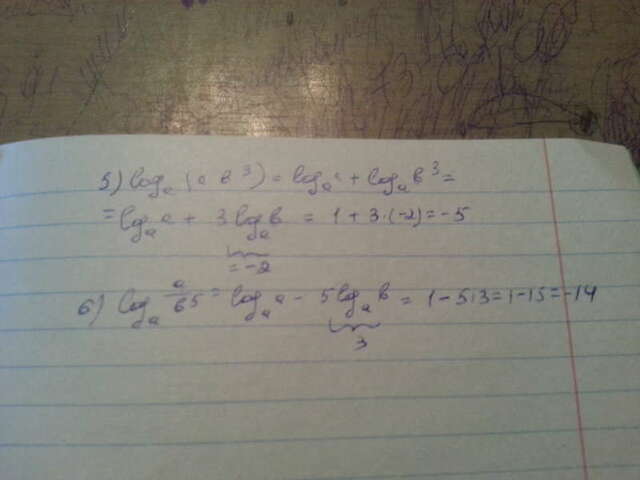 5) log_a (a b^3) = log_a a + log_a b^3 =
= log_a a + 3 log_a b = 1 + 3·(-2) = -5
= -2
6) log_a a/b5 = log_a a - 5 log_a b = 1 - 5·3 = 1 - 15 = -14
3